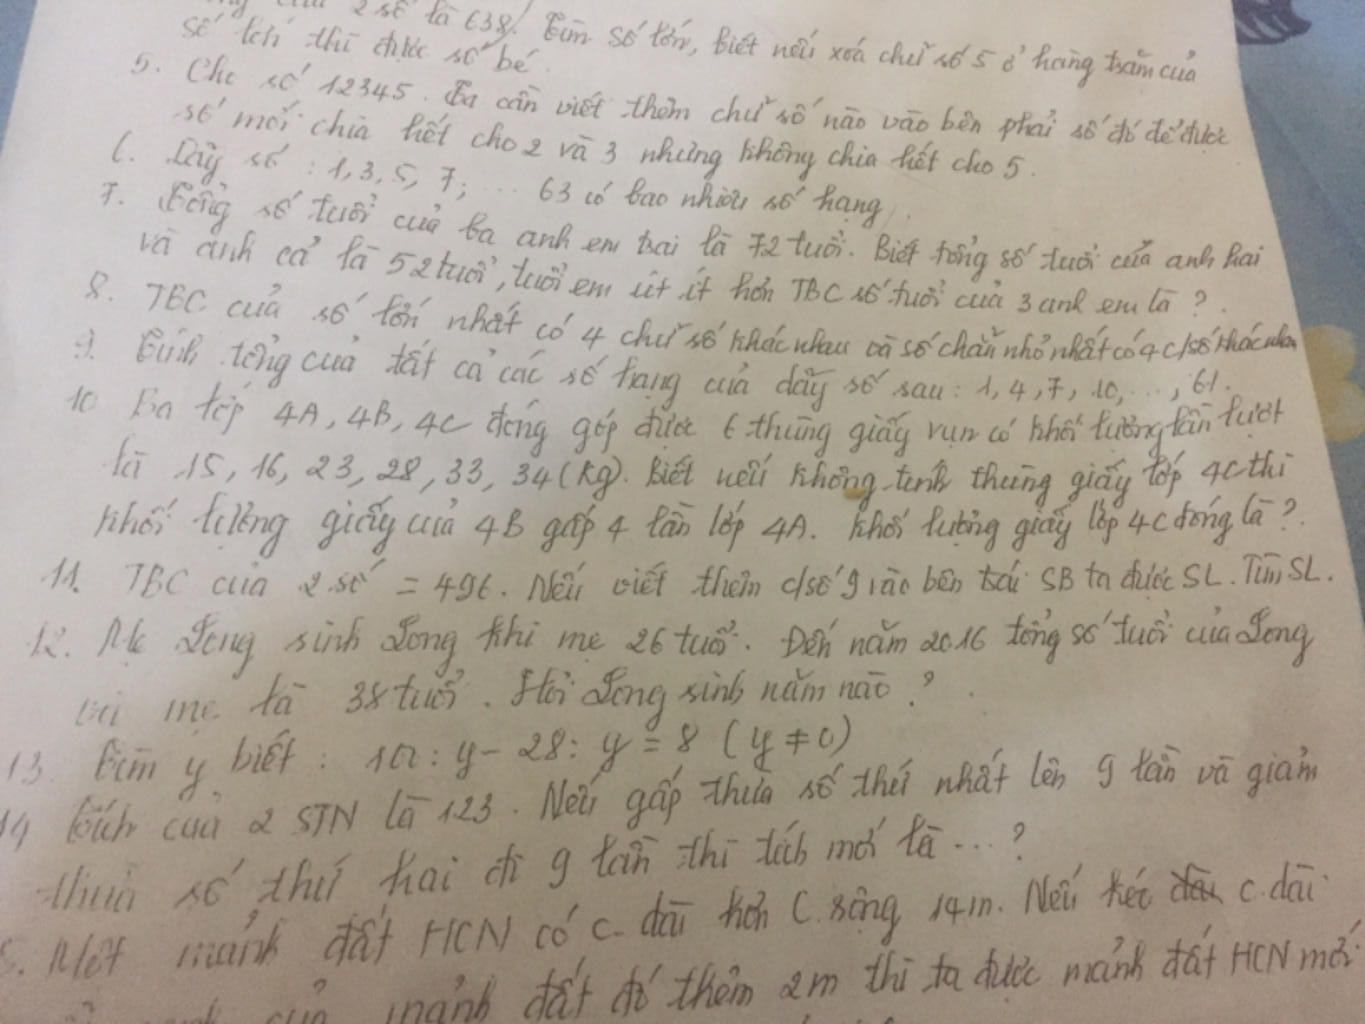 2 số là 638. Tìm số lớn, biết nếu xoá chữ số 5 ở hàng trăm của
số lớn thì được số bé.
5. Cho số 12345. Ta cần viết thêm chữ số nào vào bên phải số đó để được
số mới chia hết cho 2 và 3 nhưng không chia hết cho 5.
6. Dãy số : 1, 3, 5, 7; ... 63 có bao nhiêu số hạng
7. Tổng số tuổi của ba anh em trai là 72 tuổi. Biết tổng số tuổi của anh hai
và anh cả là 52 tuổi, tuổi em út ít hơn TBC số tuổi của 3 anh em là ?.
8. TBC của số lớn nhất có 4 chữ số khác nhau và số chẵn nhỏ nhất có 4 c/số khác nhau
9. Tính tổng của tất cả các số hạng của dãy số sau : 1, 4, 7, 10, ..., 61.
10 Ba lớp 4A, 4B, 4C đóng góp được 6 thùng giấy vụn có khối lượng lần lượt
là 15, 16, 23, 28, 33, 34 (kg). Biết nếu không tính thùng giấy lớp 4C thì
khối lượng giấy của 4B gấp 4 lần lớp 4A. Khối lượng giấy lớp 4C đóng là ?.
11. TBC của 2 số = 496. Nếu viết thêm c/số 9 vào bên trái SB ta được SL. Tìm SL.
12. Mẹ Long sinh Long khi mẹ 26 tuổi. Đến năm 2016 tổng số tuổi của Long
và mẹ là 38 tuổi. Hỏi Long sinh năm nào ?
13. Tìm y biết : : y - 28 : y = 8 (y ≠ 0)
14 Tích của 2 STN là 123. Nếu gấp thừa số thứ nhất lên 9 lần và giảm
thừa số thứ hai đi 9 lần thì tích mới là ... ?
5. Một mảnh đất HCN có c. dài hơn C. rộng 14m. Nếu kéo c. dài
của mảnh đất đó thêm 2m thì ta được mảnh đất HCN mới